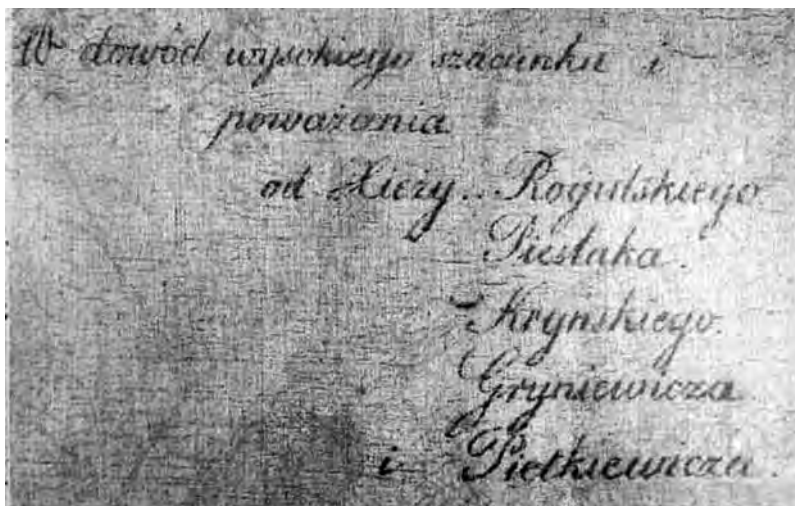 W dowód wysokiego szacunku i
poważania
od Xięży.. Rogulskiego
Piestaka.
Kryńskiego.
Gryniewicza
i Pietkiewicza.